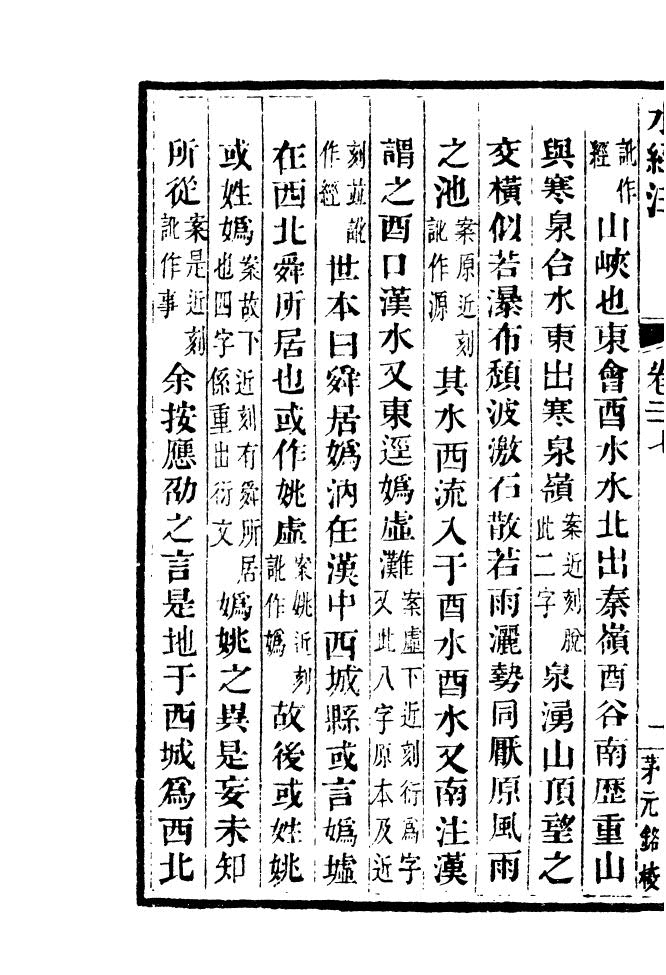 水經注 卷二十七 一 茅元銘校
訛作經山峽也東會酉水水北出秦嶺酉谷南歷重山
與寒泉台水東出寒泉嶺案近刻脫此二字泉湧山頂望之
交橫似若瀑布頹波激石散若雨灑勢同厭原風雨
之池案原近刻訛作源其水西流入于酉水酉水又南注漢
謂之酉口漢水又東逕媯虛灘案虛下近刻衍為字又此八字原本及近
刻並訛作經世本曰舜居媯汭在漢中西城縣或言媯墟
在西北舜所居也或作姚虛案姚近刻訛作媯故後或姓姚
或姓媯案故下近刻有舜所居也四字係重出衍文媯姚之異是妄未知
所從案是近刻訛作事余按應劭之言是地于西城為西北